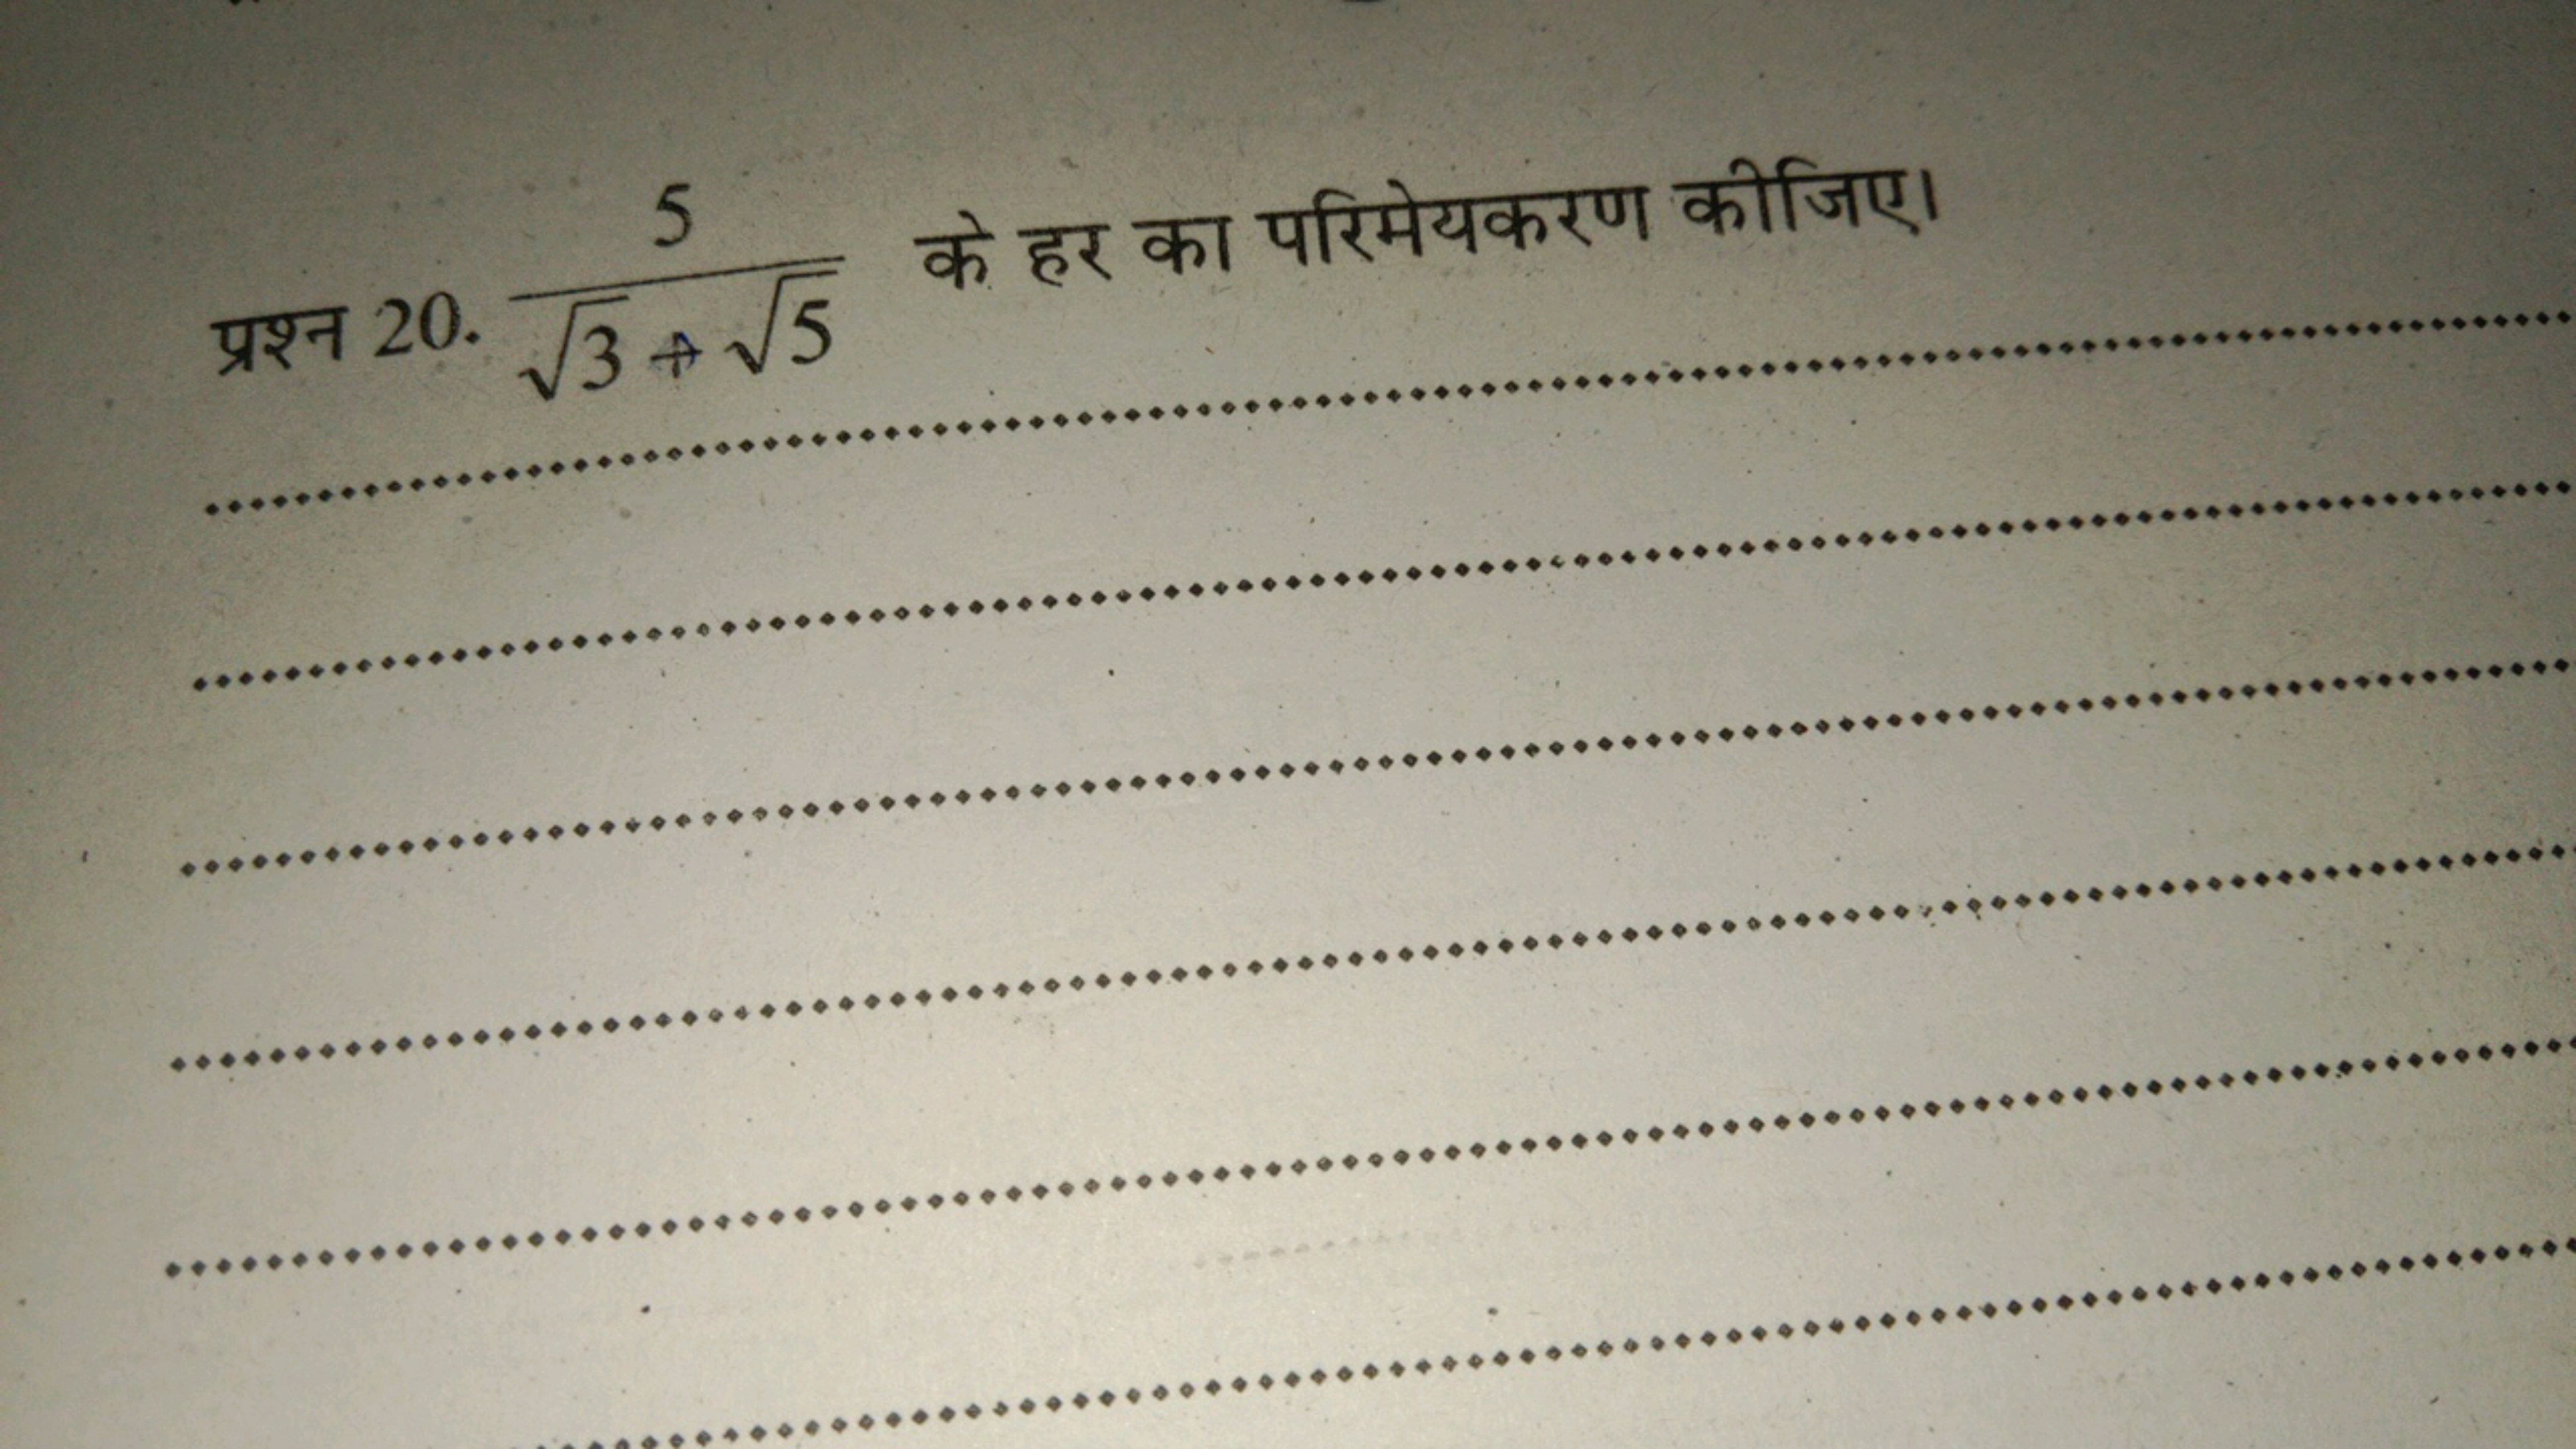 प्रश्न 20. 5/(√3 + √5) के हर का परिमेयकरण कीजिए।